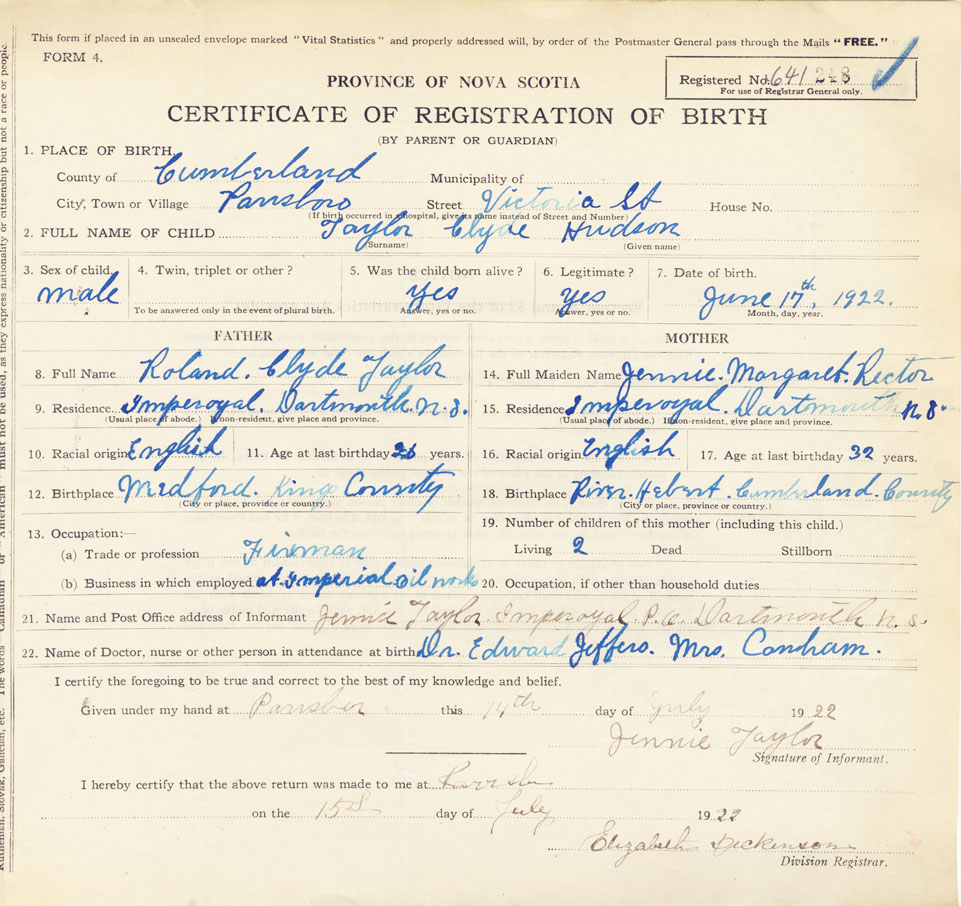 This form if placed in an unsealed envelope marked "Vital Statistics" and properly addressed will, by order of the Postmaster General pass through the Mails "FREE."
FORM 4.
Registered No. 641 248
For use of Registrar General only.
PROVINCE OF NOVA SCOTIA
CERTIFICATE OF REGISTRATION OF BIRTH
(BY PARENT OR GUARDIAN)
1. PLACE OF BIRTH,
County of Cumberland Municipality of
City, Town or Village Parrsboro Street Victoria St House No.
(If birth occurred in hospital, give its name instead of Street and Number)
2. FULL NAME OF CHILD Taylor Clyde Hudson
(Surname) (Given name)
3. Sex of child. 4. Twin, triplet or other? 5. Was the child born alive? 6. Legitimate? 7. Date of birth.
male yes yes June 17th, 1922.
To be answered only in the event of plural birth. Answer, yes or no. Answer, yes or no. Month, day, year.
FATHER MOTHER
8. Full Name Roland. Clyde Taylor 14. Full Maiden Name Jennie. Margaret. Rector
9. Residence Imperoyal. Dartmouth. N. S. 15. Residence Imperoyal. Dartmouth N. S.
(Usual place of abode. If non-resident, give place and province. (Usual place of abode.) If non-resident, give place and province.
10. Racial origin English 11. Age at last birthday 26 years. 16. Racial origin English 17. Age at last birthday 32 years.
12. Birthplace Medford. King County 18. Birthplace River. Hebert. Cumberland. County
(City or place, province or country.) (City or place, province or country.)
13. Occupation:— 19. Number of children of this mother (including this child.)
(a) Trade or profession Fireman Living 2 Dead Stillborn
(b) Business in which employed at Imperial Oil works 20. Occupation, if other than household duties
21. Name and Post Office address of Informant Jennie Taylor Imperoyal P. O. Dartmouth N. S.
22. Name of Doctor, nurse or other person in attendance at birth Dr. Edward Jeffers. Mrs. Canham.
I certify the foregoing to be true and correct to the best of my knowledge and belief.
Given under my hand at this 14th day of July 1922
Jennie Taylor
Signature of Informant.
I hereby certify that the above return was made to me at
on the 15th day of July 1922
Elizabeth Dickinson
Division Registrar.